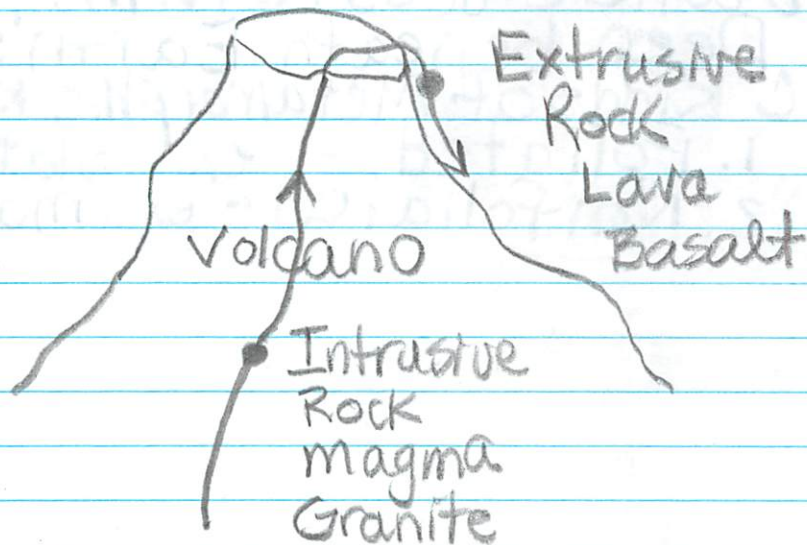 Extrusive
Rock
Lava
Basalt
Volcano
Intrusive
Rock
magma
Granite